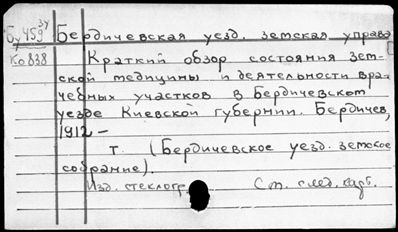 Бу 459 39 Бердичевская уезд. земская управа
Ко 838 Краткий обзор состояния зем-
ской медицины и деятельности вра-
чебных участков в Бердичевском
уезде Киевской губернии. Бердичев,
1912 –
т. (Бердичевское уезд. земское
собрание).
Изд. стеклогр. См. след. карт.